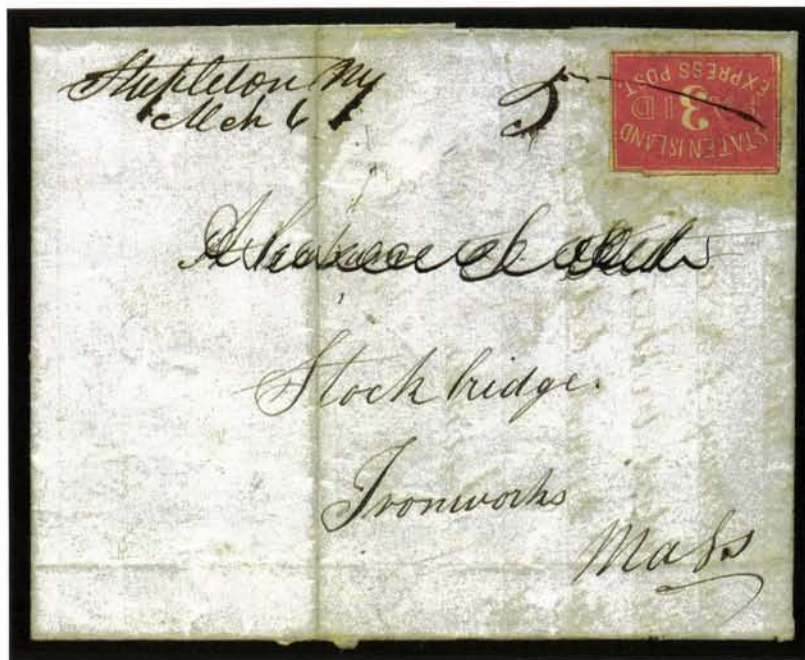 Stapleton Ny
Mch 6
5
STATEN ISLAND
3
PAID
EXPRESS POST.
Stockbridge.
Ironworks
Mass